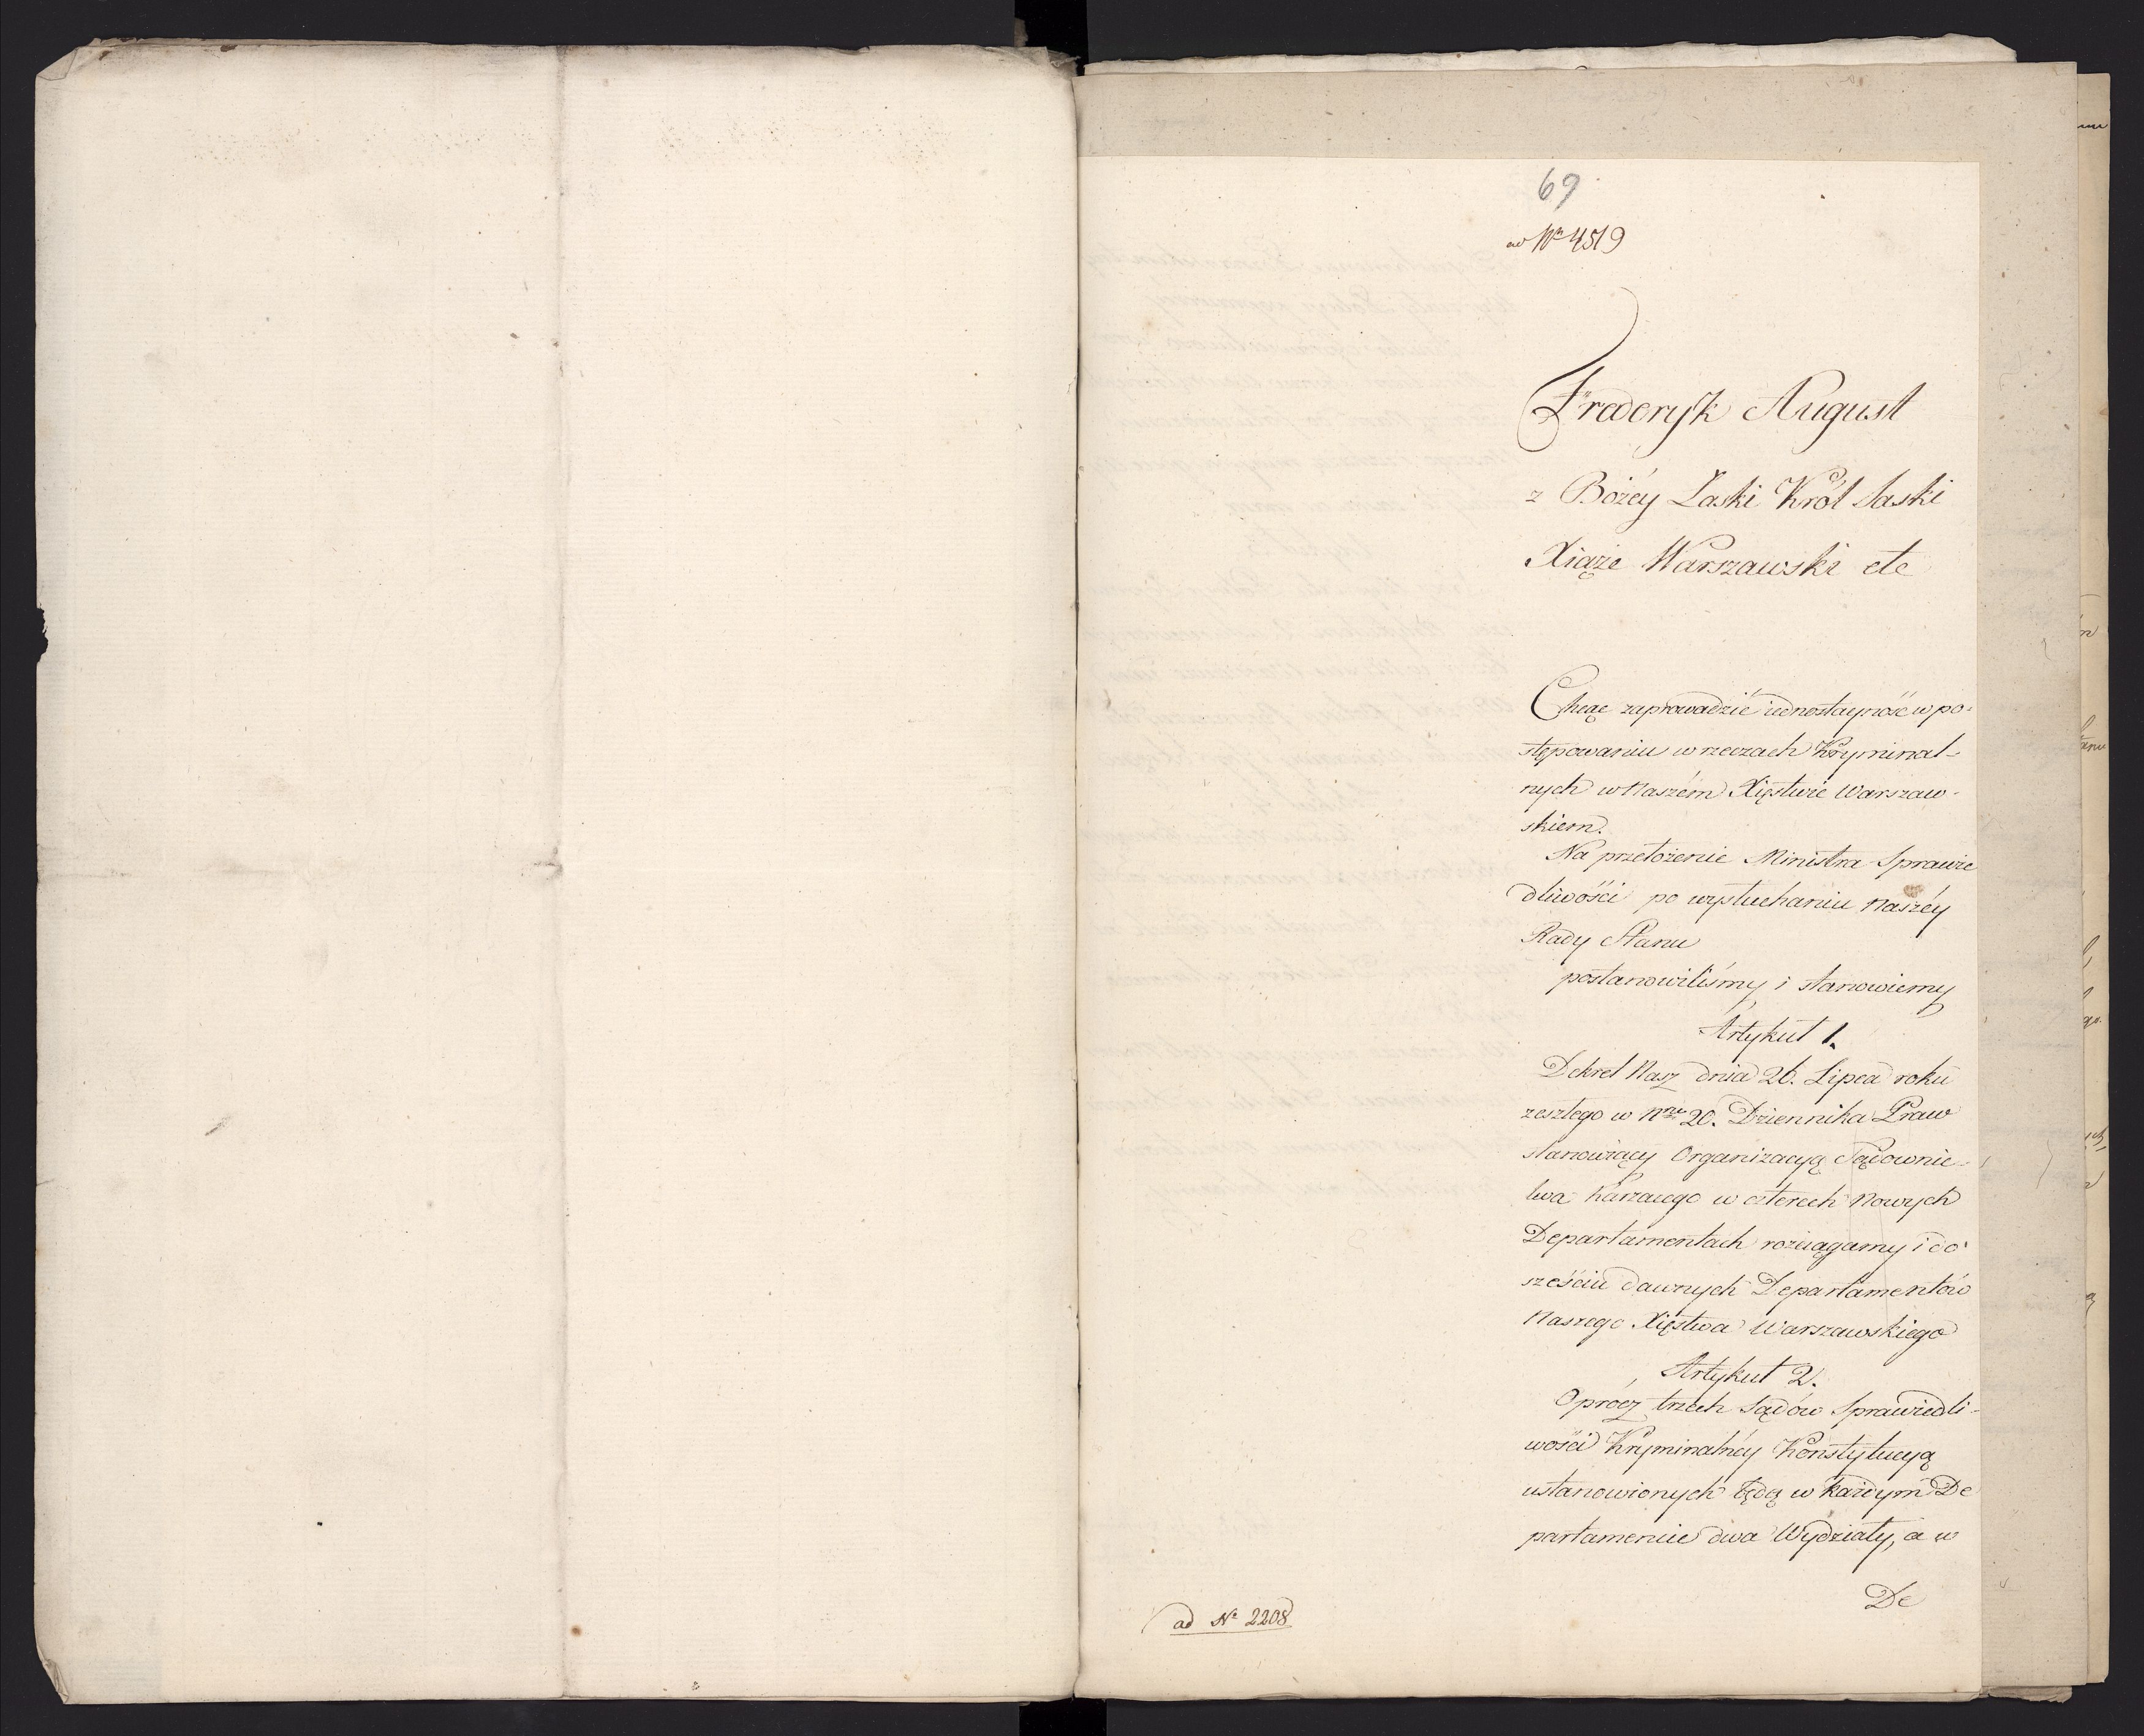 69
ad Nr 4519
Frederyk August
z Bożéy Łaski Król Saski
Xiąże Warszawski etc
Chcąc zaprowadzić iednostayność w po-
stępowaniu w rzeczach Kryminal-
nych w Naszém Xięstwie Warszaw-
skiem.
Na przełożenie Ministra Sprawie
dliwości po wysłuchaniu Naszéy
Rady Stanu
postanowiliśmy i stanowiemy
Artykuł 1.
Dekret Nasz dnia 26. Lipca roku
zeszłego w Nrze 20. Dziennika Praw
stanowiący Organizacyą Sądownic-
twa Karzącego w czterech Nowych
Departamentach rozciągamy i do
sześciu dawnych Departamentów
Naszego Xięstwa Warszawskiego
Artykuł 2.
Oprócz trzech Sądów Sprawiedli-
wości Kryminalnéy Konstytucyą
ustanowionych będą w każdym De
partamencie dwa Wydziały, a w
De
ad Nr 2208